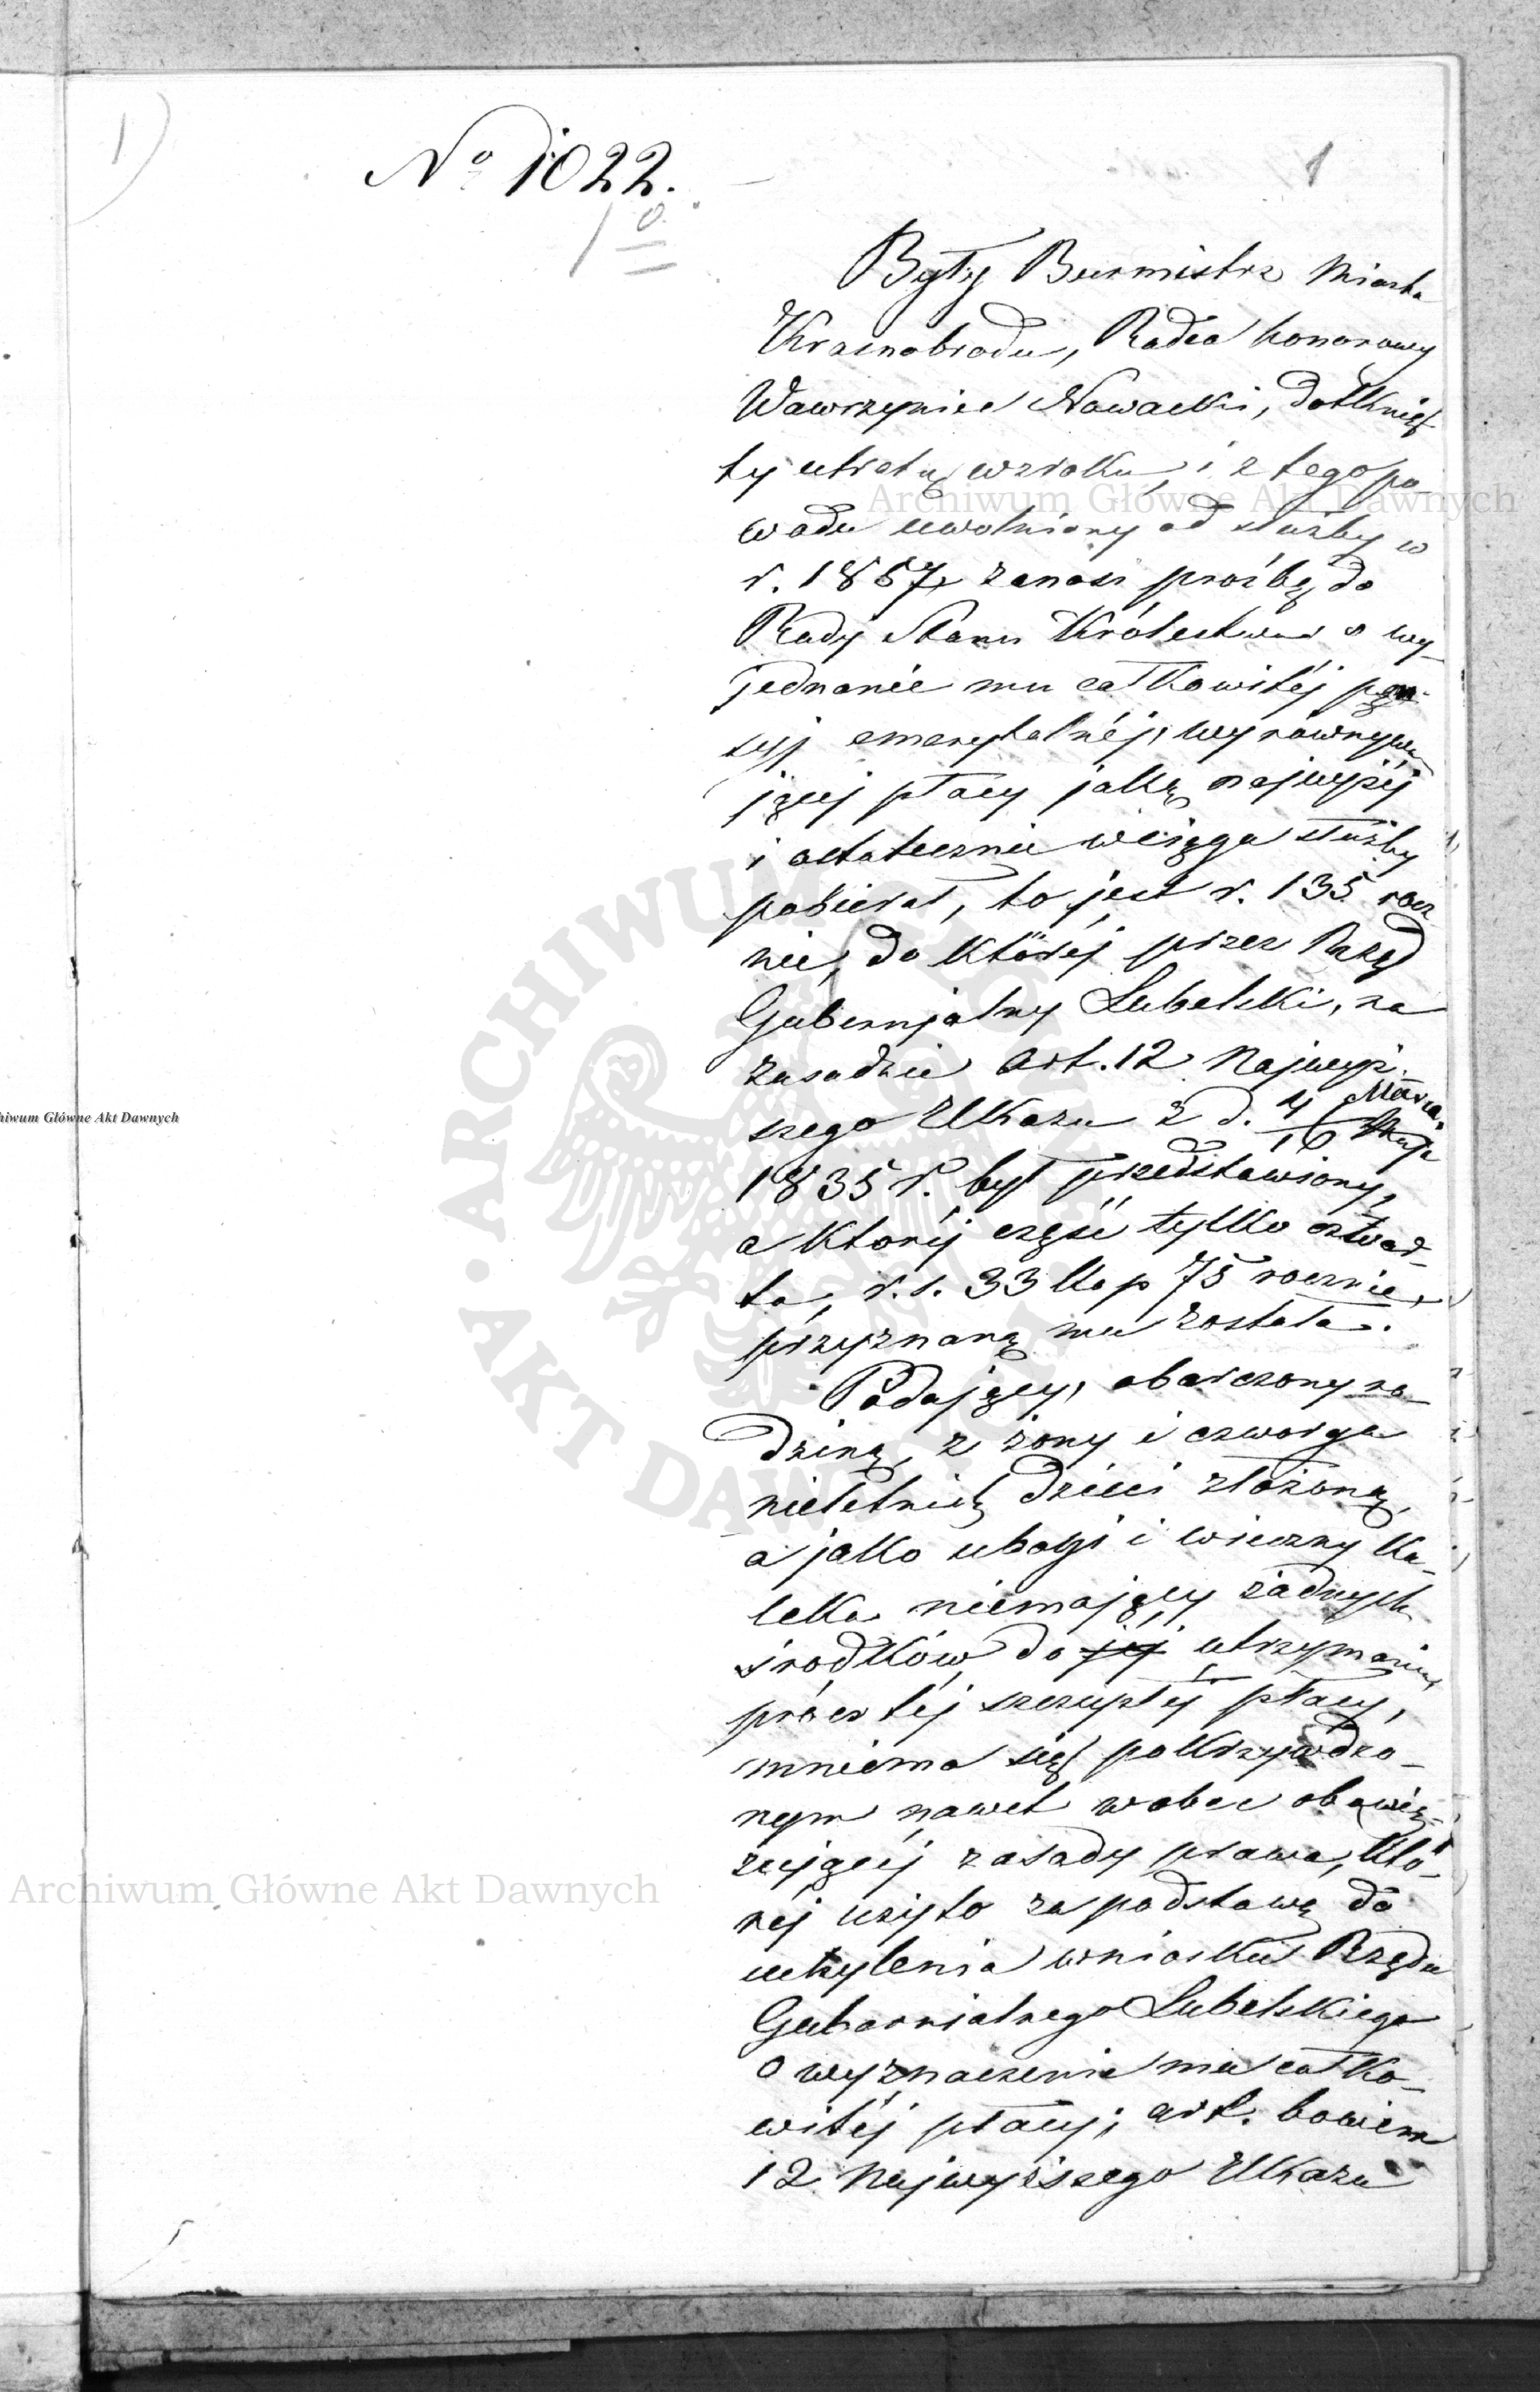 1)
Nº 1022.
1
Były Burmistrz Miasta
Krasnobrodu, Radca honorowy
Wawrzyniec Nowacki, dotknię-
ty utratą wzroku, i z tego po-
wodu uwolniony od służby w
r. 1857, zanosi proźbę do
Rady Stanu Królestwa o wy-
jednanie mu całkowitéj pen-
syj emerytalnéj, wyrównywa
jącej płacy jaką najwyżéj
i ostatecznie wciągu służby
pobierał, to jest r. 135 rocz
nie, do któréj przez Rząd
Gubernjalny Lubelski, na
zasadzie art. 12 Najwyż-
szego Ukazu z d. 4/16 Marca
1835 r. był przedstawiony,
a któréj część tylko czwar-
ta, r. s. 33 kop 75 rocznie,
przyznaną mu została.
Podający, obarczony ro-
dziną, z żony i czworga
nieletnich dzieci złożoną,
a jako ubogi i wieczny ka-
leka niemający żadnych
środków do jéj utrzymania
prócz téj szczupłéj płacy,
mniema się pokrzywdzo-
nym nawet wobec obowią-
zującéj zasady prawa, któ-
réj użyto za podstawę do
uchylenia wniosku Rządu
Gubernialnego Lubelskiego
o wyznaczenie mu całko-
witéj płacy; art. bowiem
12 Najwyższego Ukazu
Archiwum Główne Akt Dawnych
hiwum Główne Akt Dawnych
ARCHIWUM GŁÓWNE AKT DAWNYCH
Archiwum Główne Akt Dawnych